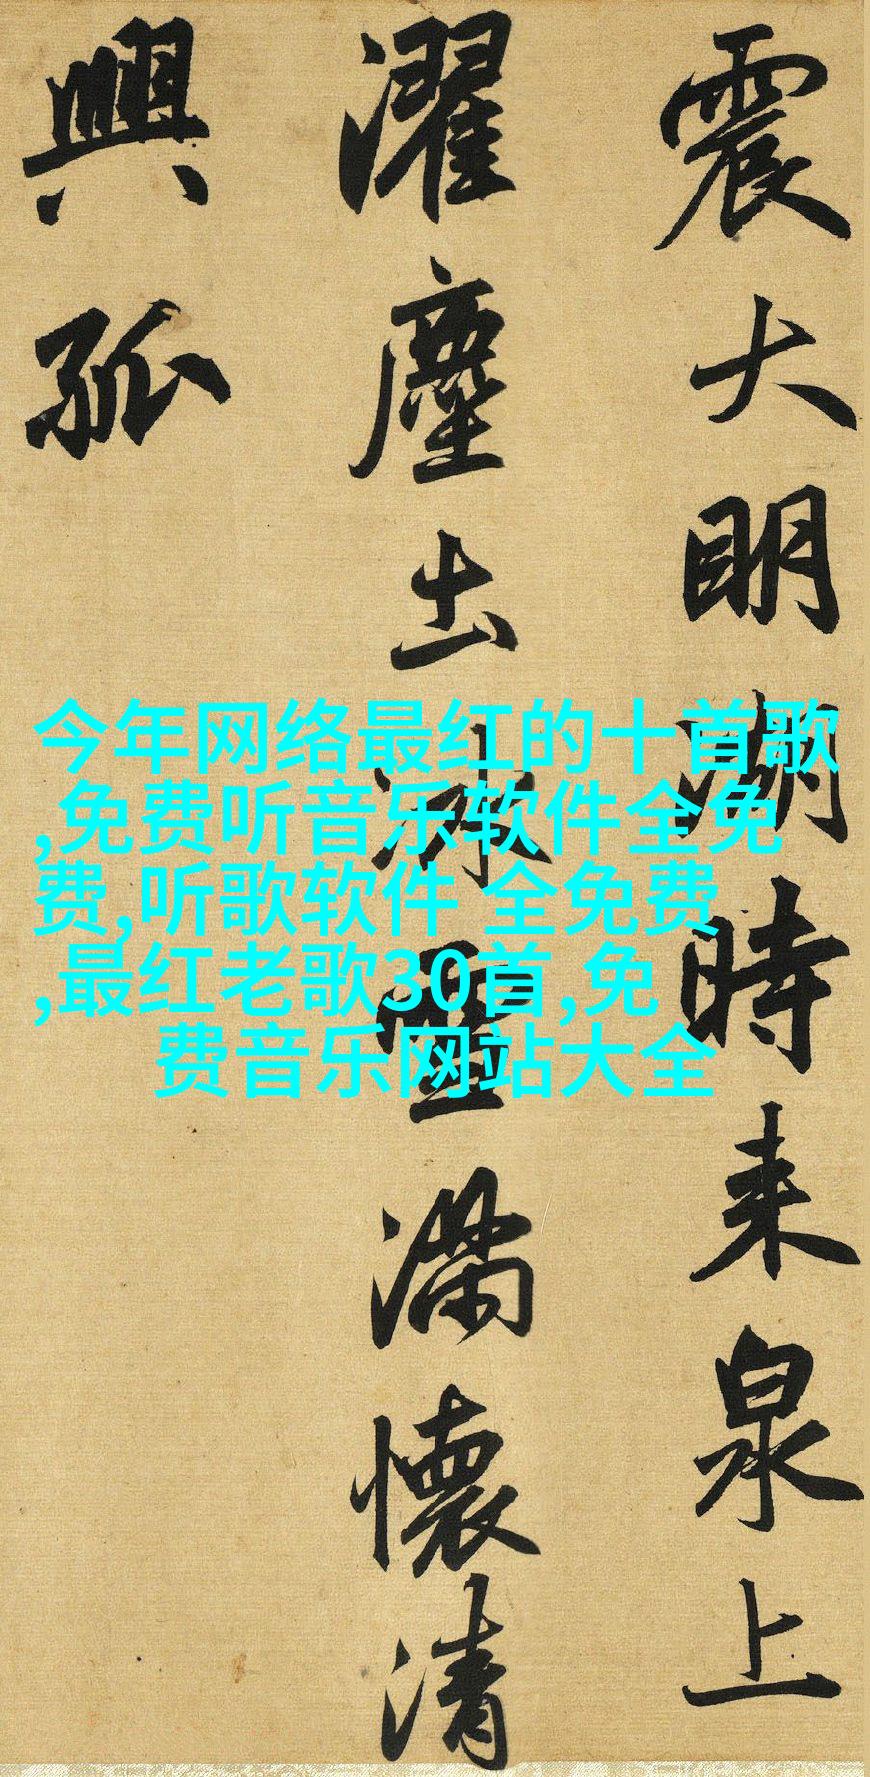 震大明湖時来泉上
濯塵土冰雪滿懷清
興孤
今年网络最红的十首歌
,免费听音乐软件全免
费,听歌软件 全免费
,最红老歌30首,免
费音乐网站大全